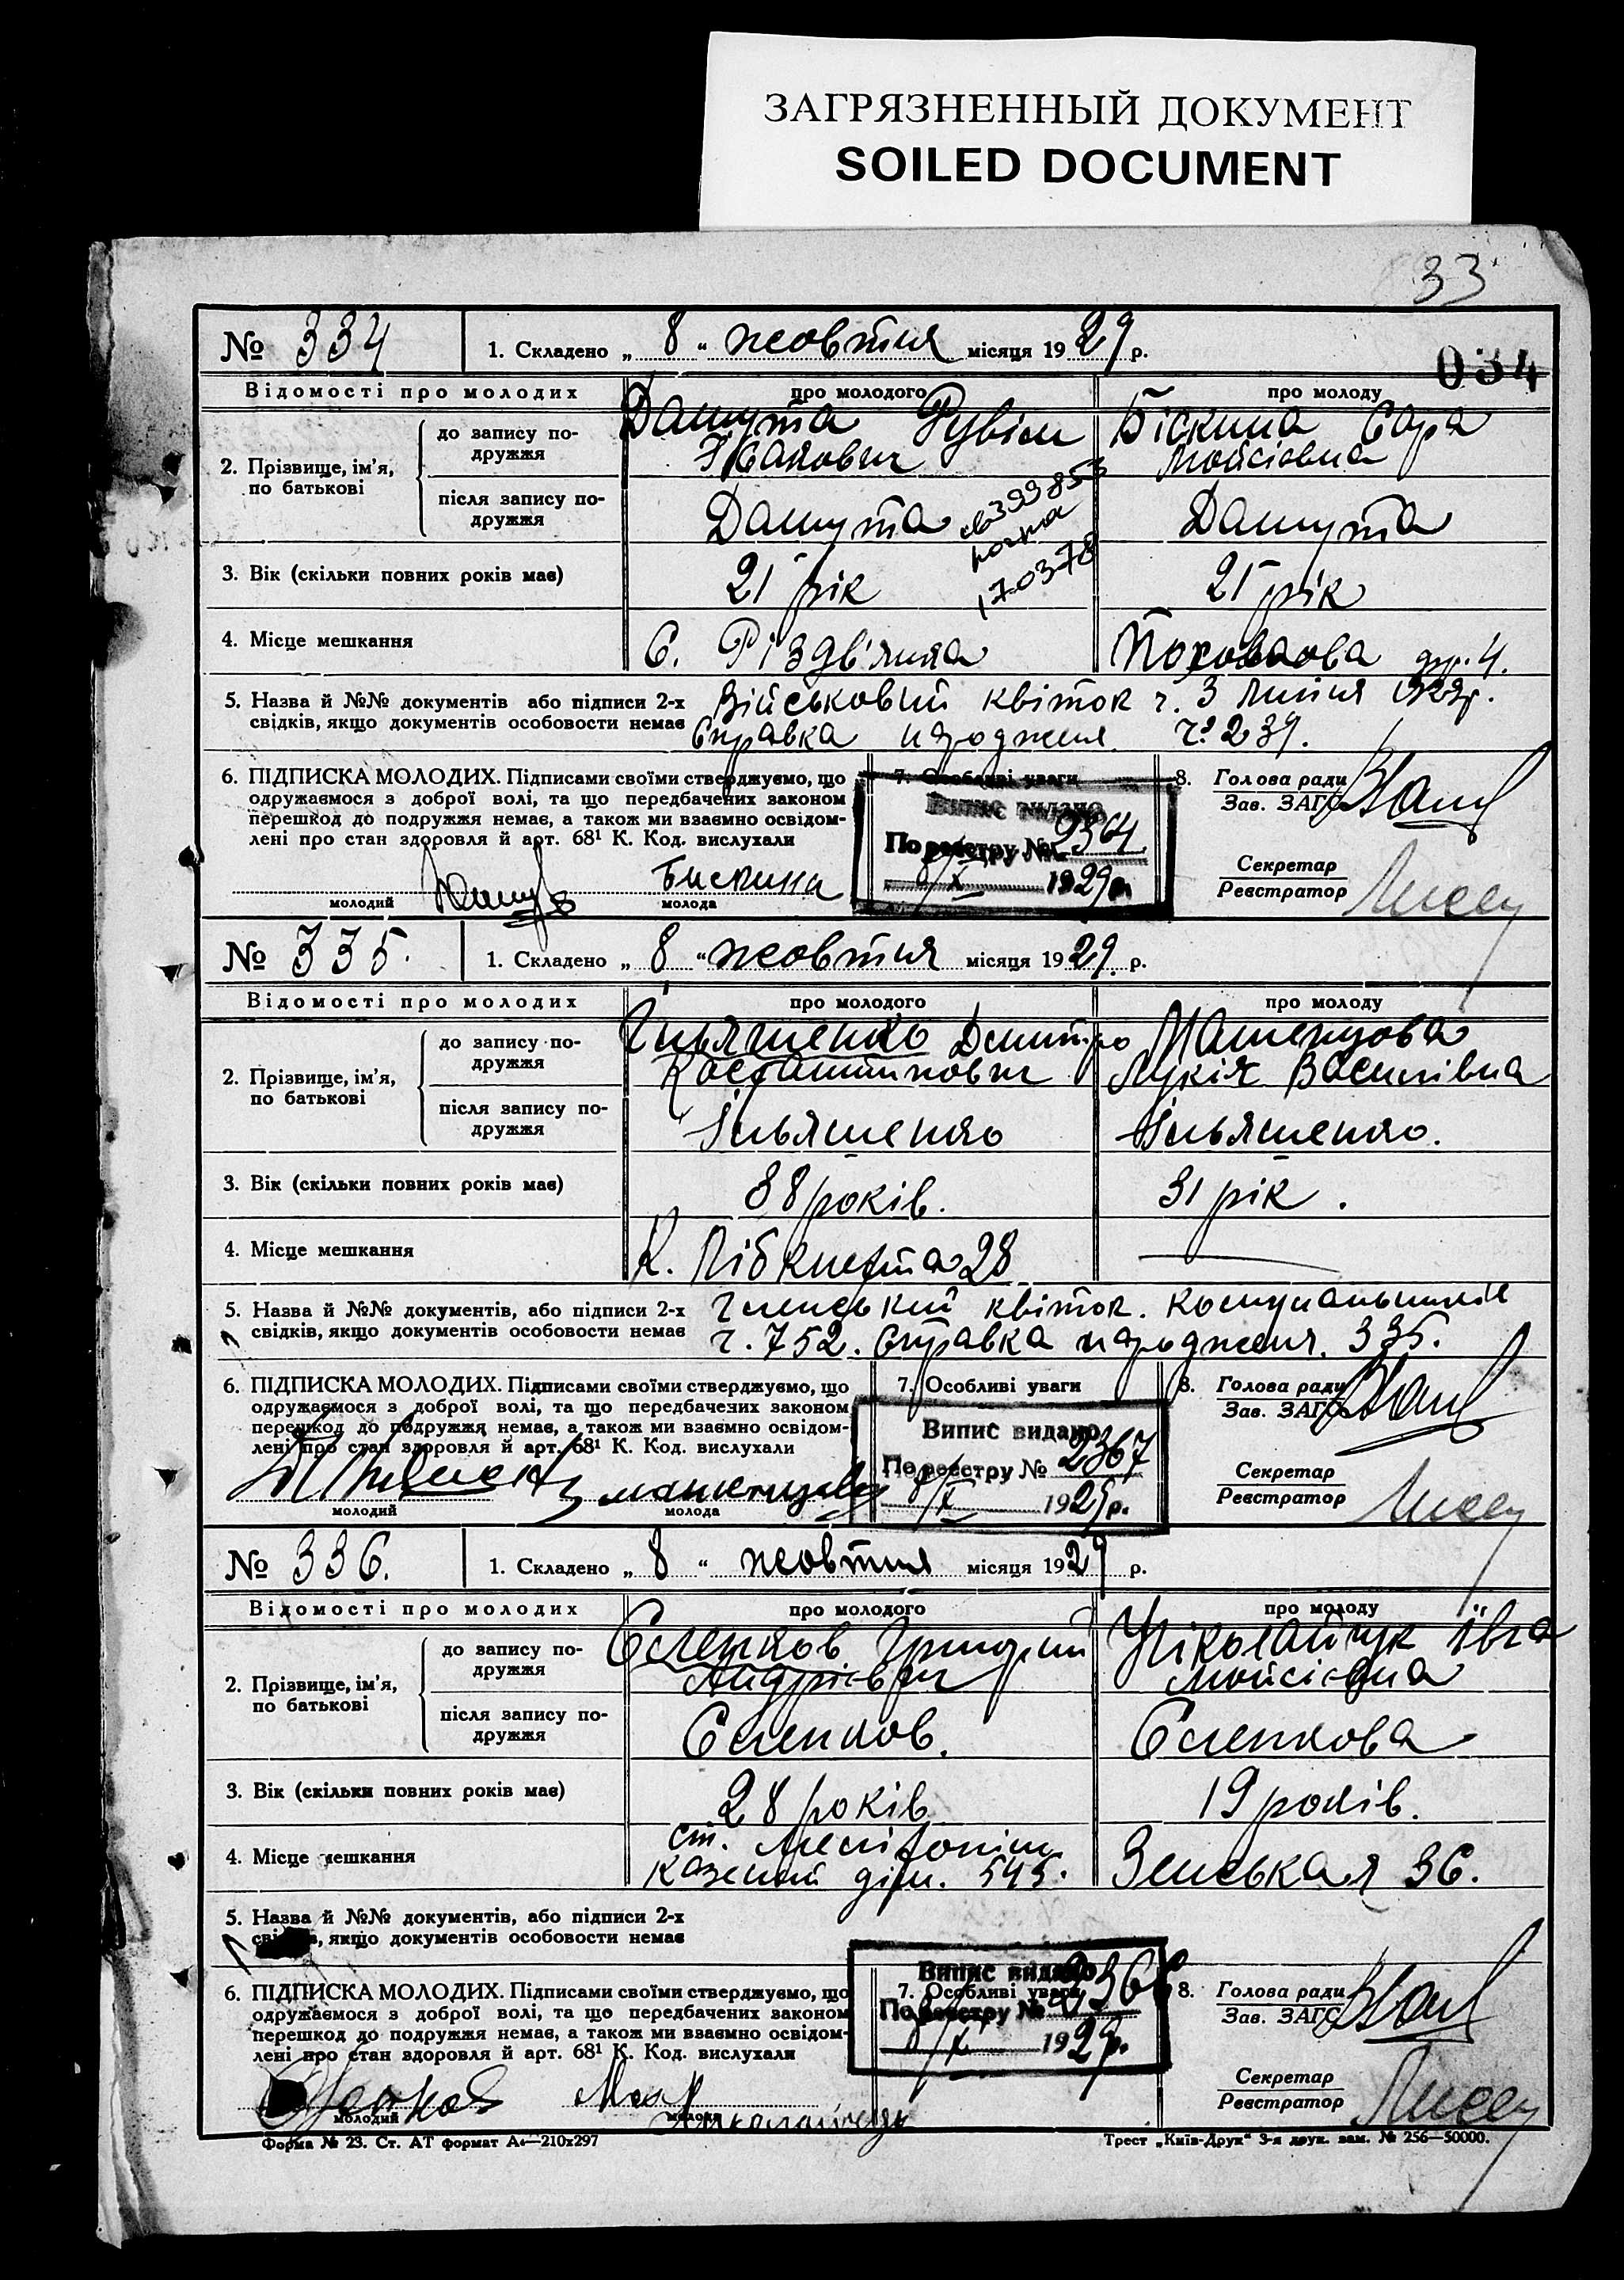 ЗАГРЯЗНЕННЫЙ ДОКУМЕНТ
SOILED DOCUMENT
33
№ 334
1. Складено „ 8 “ жовтня місяця 1929 р.
034
Відомості про молодих
про молодого
про молоду
2. Прізвище, ім’я, по батькові
до запису по-
дружжя
Рувім
Біскина Сара
Мойсіївна
після запису по-
дружжя
3. Вік (скільки повних років має)
21 рік
21 рік
170378
4. Місце мешкання
С.
5. Назва й №№ документів або підписи 2-х
свідків, якщо документів особовости немає
Військовий квіток ч. 3
Справка народження ч. 239.
6. ПІДПИСКА МОЛОДИХ. Підписами своїми стверджуємо, що
одружаємося з доброї волі, та що передбачених законом
перешкод до подружжя немає, а також ми взаємно освідом-
лені про стан здоровля й арт. 68¹ К. Код. вислухали
молодий
Бискина
молода
7. Особливі уваги
Випис видано
По реєстру № 2364
8/X 1929 р.
8. Голова ради
Зав. ЗАГС
Секретар
Реєстратор
№ 335.
1. Складено „ 8 “ жовтня місяця 1929. р.
Відомості про молодих
про молодого
про молоду
2. Прізвище, ім’я,
по батькові
до запису по-
дружжя
Ільяшенко Дмитро
Костантинович
Лукія Василівна
після запису по-
дружжя
Ільяшенко
Ільяшенко.
3. Вік (скільки повних років має)
38 років.
31 рік.
4. Місце мешкання
К. Лібкнехта 28
5. Назва й №№ документів, або підписи 2-х
свідків, якщо документів особовости немає
Членський квіток.
ч. 752. Справка народження. 335.
6. ПІДПИСКА МОЛОДИХ. Підписами своїми стверджуємо, що
одружаємося з доброї волі, та що передбачених законом
перешкод до подружжя немає, а також ми взаємно освідом-
лені про стан здоровля й арт. 68¹ К. Код. вислухали
молодий
молода
7. Особливі уваги
Випис видано
По реєстру № 2367
8/X 1929 р.
8. Голова ради
Зав. ЗАГС
Секретар
Реєстратор
№ 336.
1. Складено „ 8 “ жовтня місяця 1929 р.
Відомості про молодих
про молодого
про молоду
2. Прізвище, ім’я,
по батькові
до запису по-
дружжя
Єленков Григорій
Андрієвич
Ніколайчук Івга
Мойсіївна
після запису по-
дружжя
Єленков.
Єленкова
3. Вік (скільки повних років має)
28 років
19 років.
4. Місце мешкання
ст. Мелітопіль
казеній дім. 545.
Земська 36.
5. Назва й №№ документів, або підписи 2-х
якщо документів особовости немає
6. ПІДПИСКА МОЛОДИХ. Підписами своїми стверджуємо, що
одружаємося з доброї волі, та що передбачених законом
перешкод до подружжя немає, а також ми взаємно освідом-
лені про стан здоровля й арт. 68¹ К. Код. вислухали
молодий
молода
7. Особливі уваги
Випис видано
По реєстру №
8/X 1929 р.
8. Голова ради
Зав. ЗАГС
Секретар
Реєстратор
Форма № 23. Ст. АТ формат А₄—210x297
Трест „Київ-Друк“ 3-я друк. зам. № 256—50000.